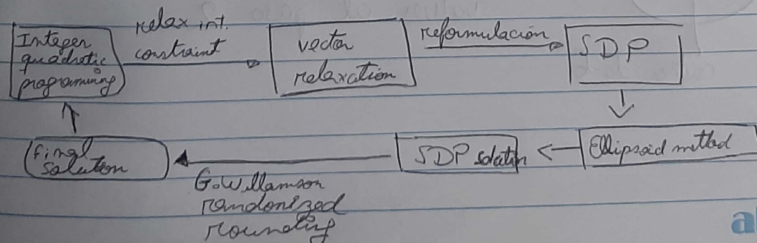 Integer
quadratic
programming
relax int.
constraint
vector
relaxation
reformulación
SDP
Ellipsoid method
SDP solution
G.Williamson
randomized
rounding
Final
solution
a